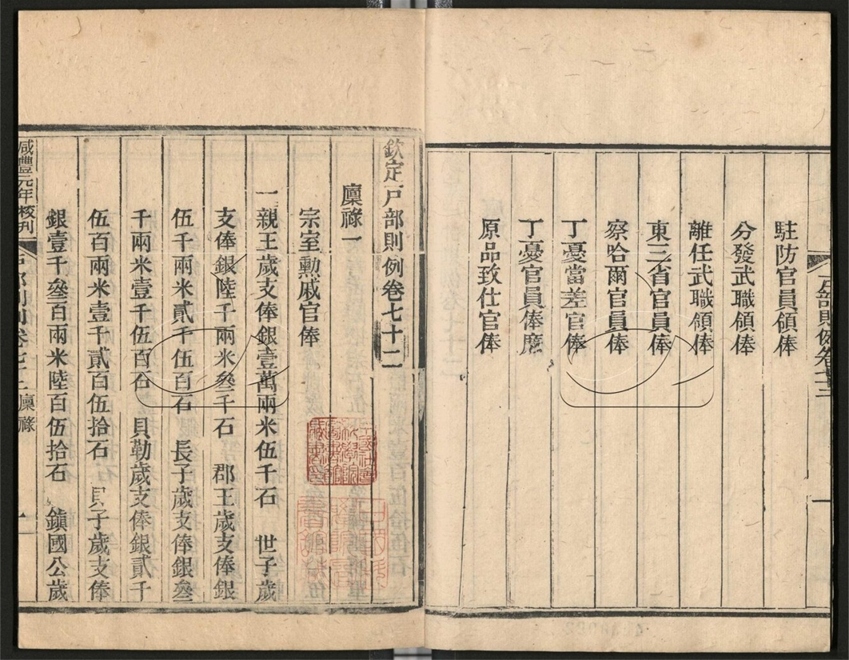 駐防官員領俸
分發武職領俸
離任武職領俸
東三省官員俸
察哈爾官員俸
丁憂當差官俸
丁憂官員俸廉
原品致仕官俸
欽定戶部則例卷七十二
廩祿一
宗室勳戚官俸
一親王歲支俸銀壹萬兩米伍千石 世子歲
支俸銀陸千兩米叄千石 郡王歲支俸銀
伍千兩米貳千伍百石 長子歲支俸銀叄
千兩米壹千伍百石 貝勒歲支俸銀貳千
伍百兩米壹千貳百伍拾石 貝子歲支俸
銀壹千叄百兩米陸百伍拾石 鎮國公歲
咸豐元年校刋
戶部則例卷七十二 廩祿